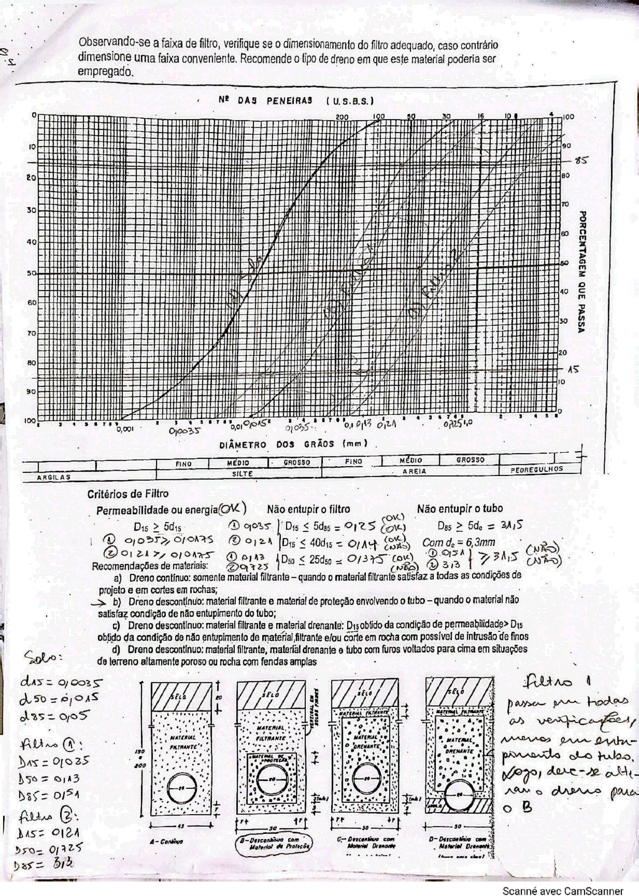 Observando-se a faixa de filtro, verifique se o dimensionamento do filtro adequado, caso contrário
dimensione uma faixa conveniente. Recomende o tipo de dreno em que este material poderia ser
empregado.
Nº DAS PENEIRAS (U.S.B.S.)
200 100 50 30 16 10 8 4
0 10 20 30 40 50 60 70 80 90 100
100 90 85 80 70 60 50 40 30 20 15 10 0
PORCENTAGEM QUE PASSA
Solo
0,001 0,0035 0,01 0,015 0,035 0,1 0,13 0,21 0,725 1,0
DIÂMETRO DOS GRÃOS (mm)
FINO MÉDIO GROSSO FINO MÉDIO GROSSO
ARGILAS SILTE AREIA PEDREGULHOS
Critérios de Filtro
Permeabilidade ou energia (OK) Não entupir o filtro Não entupir o tubo
D15 ≥ 5d15 ① 0,035 D15 ≤ 5d85 = 0,25 (OK) (OK) D85 ≥ 5d0 = 31,5
① 0,035 ≥ 0,0175 ② 0,21 D15 ≤ 40d15 = 0,14 (OK) (NÃO) Com d0 = 6,3mm
② 0,21 ≥ 0,0175 ① 0,13 ② 0,725 D50 ≤ 25d50 = 0,375 (OK) (NÃO) ① 0,51 ② 3,3 ≥ 31,5 (NÃO) (NÃO)
Recomendações de materiais:
a) Dreno contínuo: somente material filtrante – quando o material filtrante satisfaz a todas as condições de
projeto e em cortes em rochas;
→ b) Dreno descontínuo: material filtrante e material de proteção envolvendo o tubo – quando o material não
satisfaz condição de não entupimento do tubo;
c) Dreno descontínuo: material filtrante e material drenante: D15 obtido da condição de permeabilidade> D15
obtido da condição de não entupimento de material filtrante e/ou corte em rocha com possível de intrusão de finos
d) Dreno descontínuo: material filtrante, material drenante e tubo com furos voltados para cima em situações
de terreno altamente poroso ou rocha com fendas amplas
Solo:
d15 = 0,0035
d50 = 0,015
d85 = 0,05
Filtro ①:
D15 = 0,035
D50 = 0,13
D85 = 0,51
Filtro ②:
D15 = 0,21
D50 = 0,725
D85 = 3,3
SELO
MATERIAL
FILTRANTE
A - Contínuo
SELO
MATERIAL
FILTRANTE
MATERIAL DE
PROTEÇÃO
B - Descontínuo com
Material de Proteção
SELO
MATERIAL FILTRANTE
MATERIAL
DRENANTE
C - Descontínuo com
Material Drenante
SELO
MATERIAL FILTRANTE
MATERIAL
DRENANTE
D - Descontínuo com
Material Drenante
Filtro 1
passa em todas
as verificações,
menos em entu-
pimento do tubo.
Logo, deve-se alte-
rar o dreno para
o B
Scanné avec CamScanner